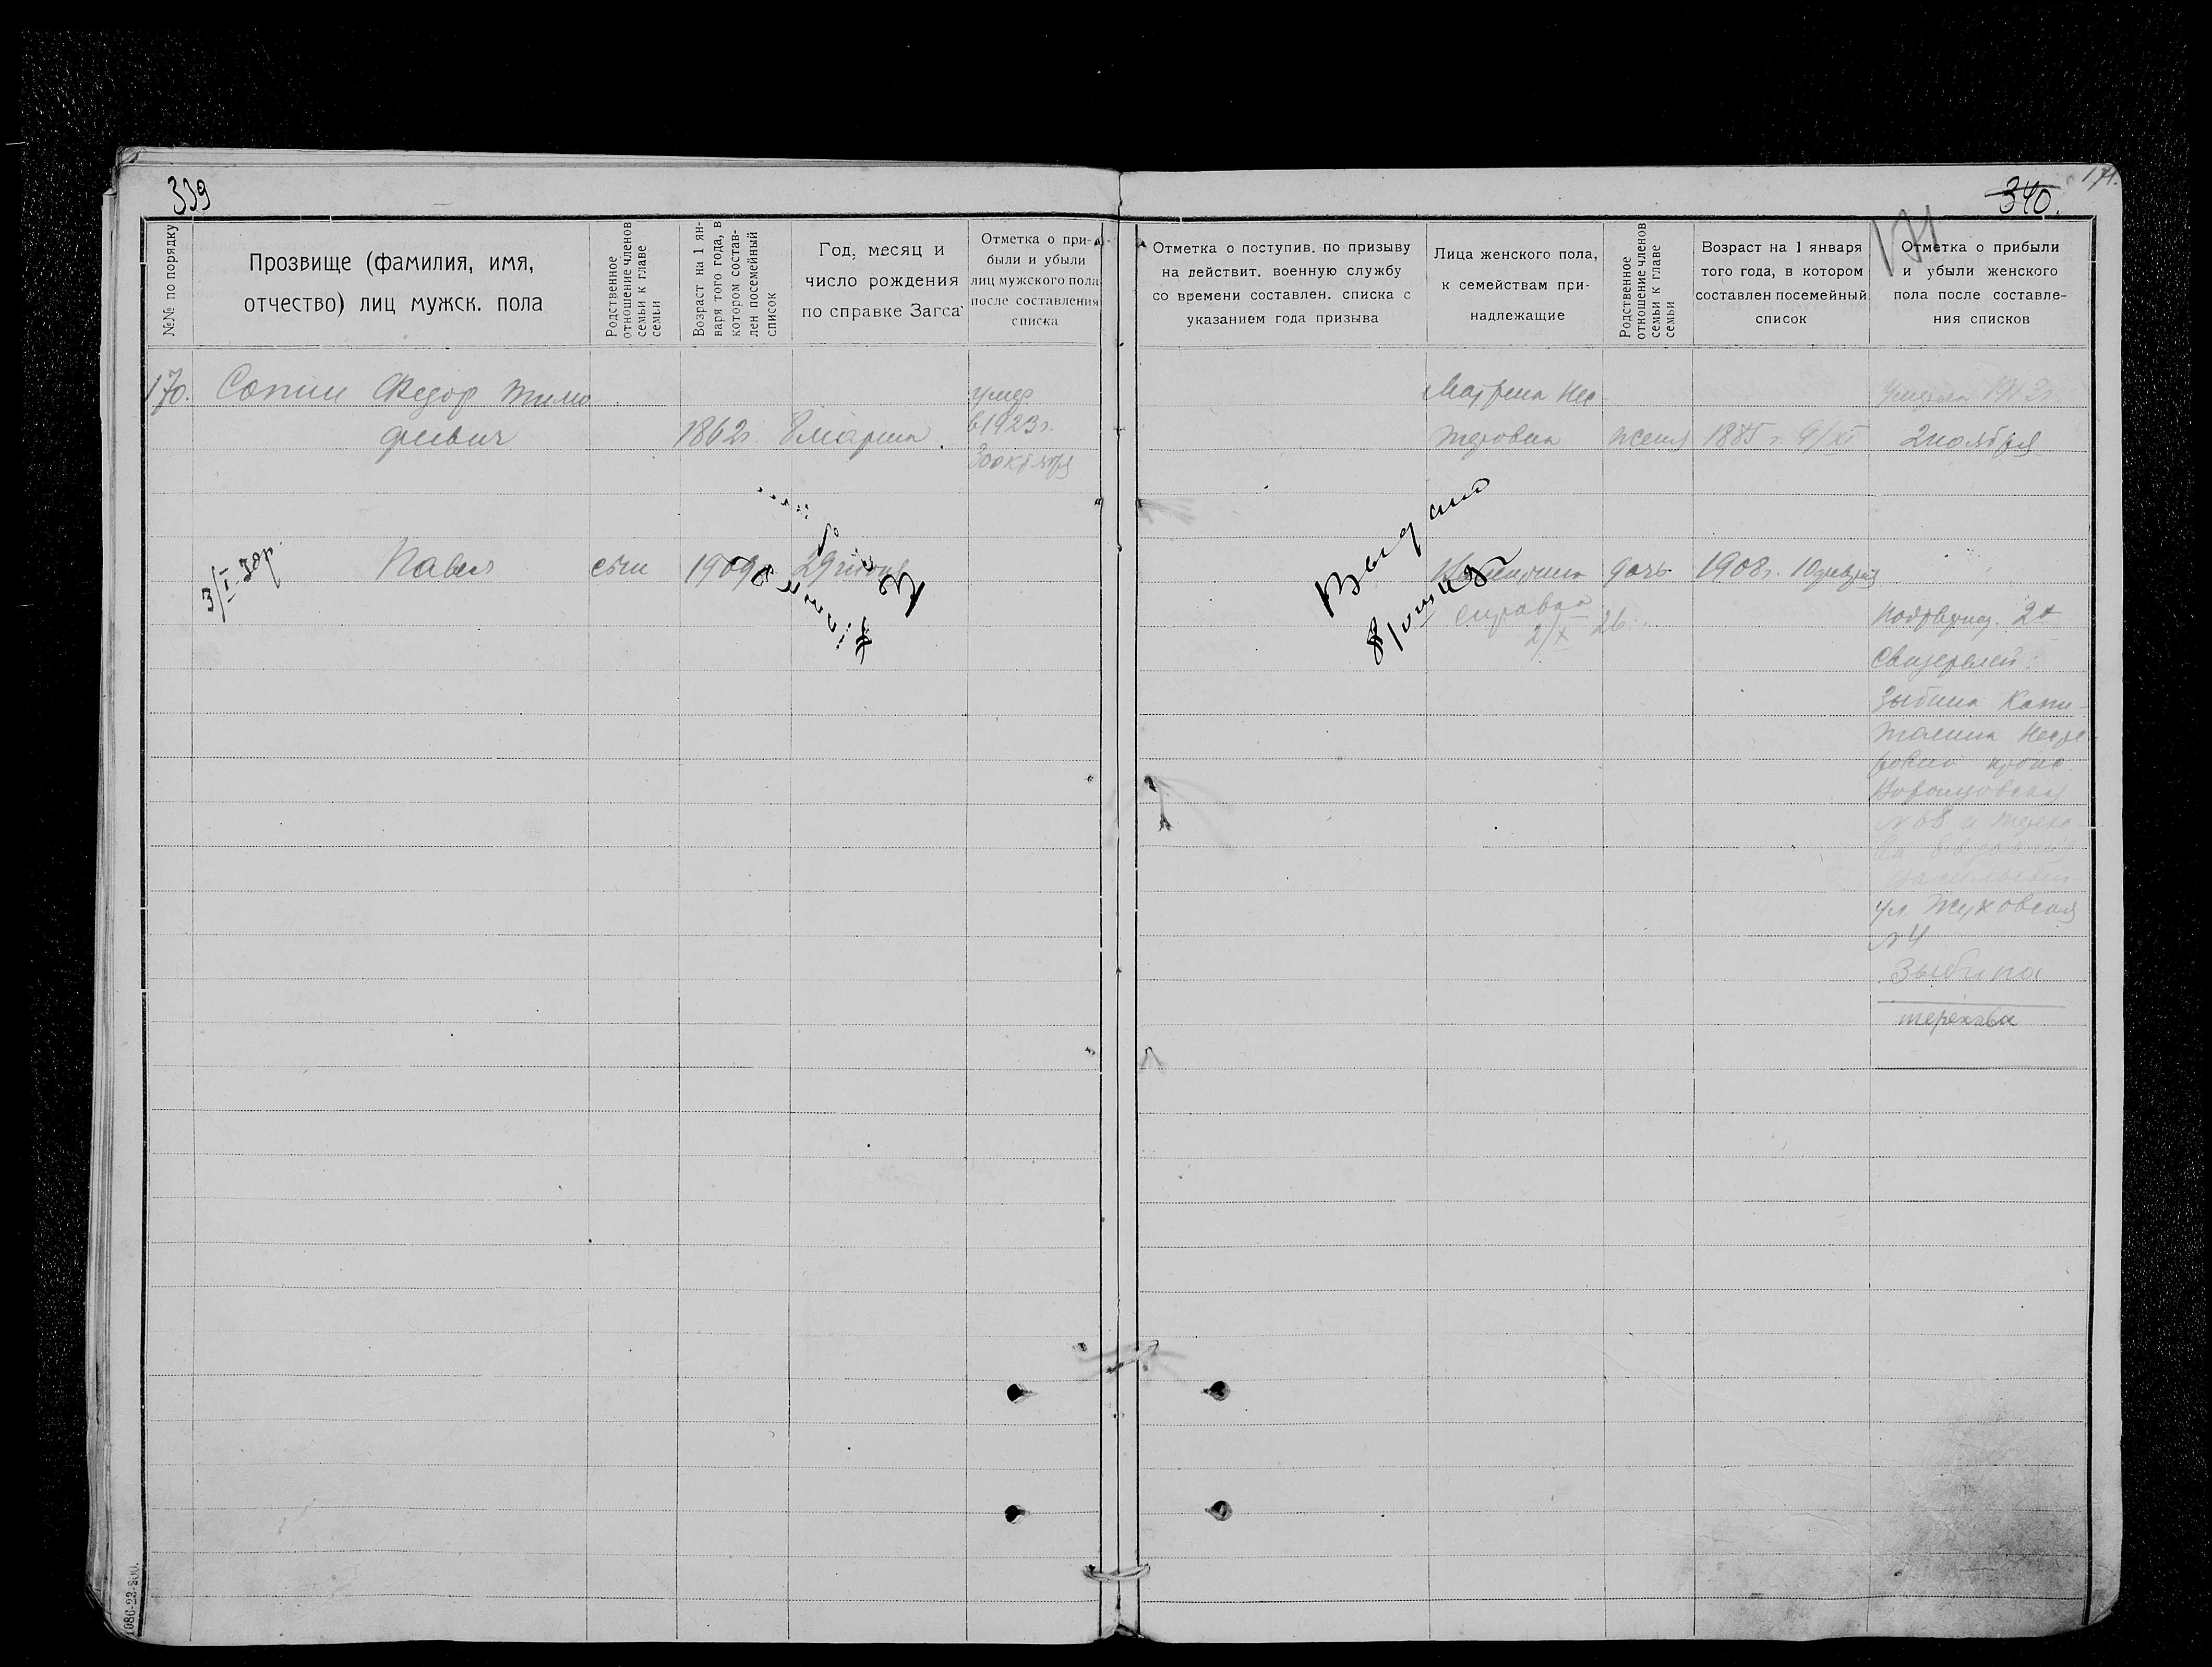 339
№№ по порядку
Прозвище (фамилия, имя,
отчество) лиц мужск. пола
Родственное
отношение членов
семьи к главе
семьи
Возраст на 1 ян-
варя того года, в
котором состав-
лен посемейный
список
Год, месяц и
число рождения
по справке Загса
Отметка о при-
были и убыли
лиц мужского пола
после составления
списка
170. Сопин Федор Тимо
умер
фиевич 1862г. 8 марта
в 1923г.
30 октября
3/I 30г.
Павел сын 1909 29 июня
1086-23-200.
340.
171.
171
Отметка о поступив. по призыву
на действит. военную службу
со времени составлен. списка с
указанием года призыва
Лица женского пола,
к семействам при-
надлежащие
Родственное
отношение членов
семьи к главе
семьи
Возраст на 1 января
того года, в котором
составлен посемейный
список
Отметка о прибыли
и убыли женского
пола после составле-
ния списков
Матрена Нес-
умерла 1912г.
теровна жена 1885 г. 9/XI
2 ноября
Выдано
дочь 1908г. 10
справка
2/X 26.
Подтвержд. 2х
свидетелей:
Зыбина Капи-
толина Несте-
ровна
№ 68 и Терехо-
ул. Жуковская
№ 4
Зыбина
Терехова